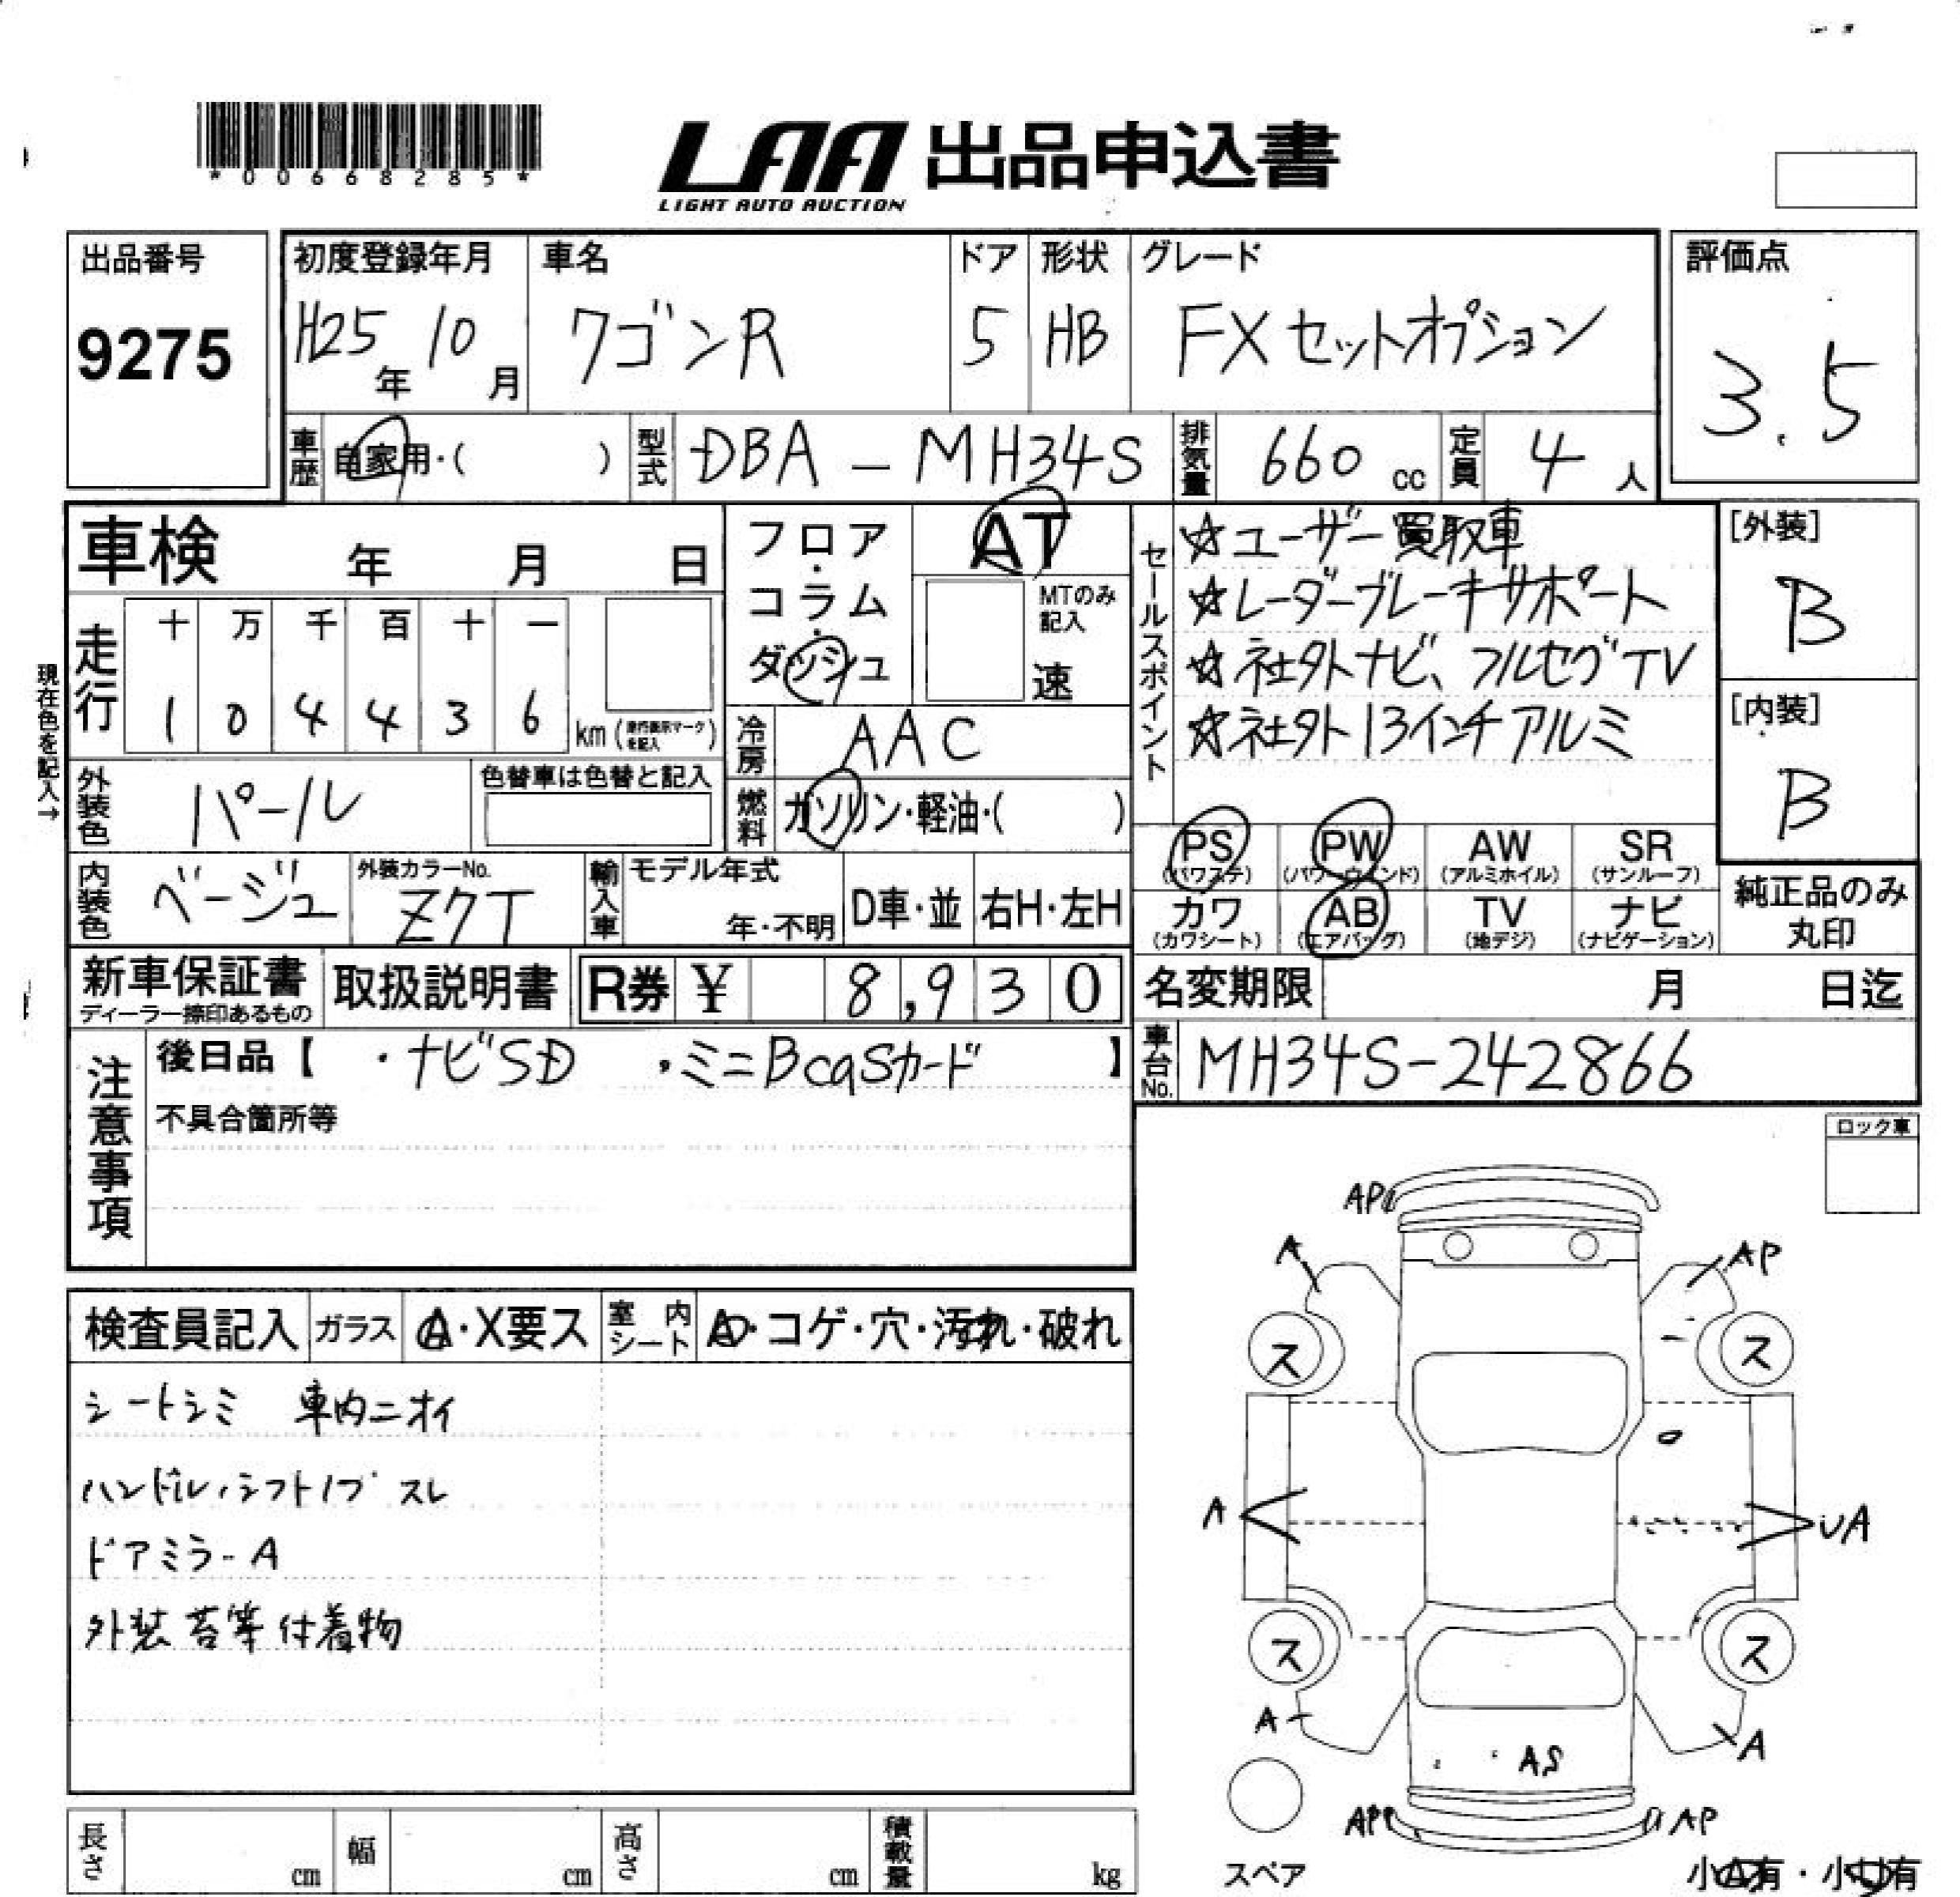 *00668285*
LAA 出品申込書
LIGHT AUTO AUCTION
出品番号
9275
初度登録年月
H25年 10月
車名
ワゴンR
ドア
5
形状
HB
グレード
FXセットオプション
評価点
3.5
車歴 自家用・( )
型式 DBA-MH34S
排気量 660 cc
定員 4 人
車検 年 月 日
走行 十 万 千 百 十 一
1 0 4 4 3 6 km
現在色を記入→
フロア・コラム・ダッシュ
AT
MTのみ記入
速
冷房 AAC
燃料 ガソリン・軽油・( )
外装色 パール
色替車は色替と記入
内装色 ベージュ
外装カラーNo.
Z7T
輸入車 モデル年式
年・不明
D車・並
右H・左H
セールスポイント
☆ユーザー買取車
☆レーダーブレーキサポート
☆社外ナビ、フルセグTV
☆社外13インチアルミ
[外装]
B
[内装]
B
PS (パワステ)
PW (パワーウィンド)
AW (アルミホイル)
SR (サンルーフ)
カワ (カワシート)
AB (エアバッグ)
TV (地デジ)
ナビ (ナビゲーション)
純正品のみ丸印
新車保証書
ディーラー捺印あるもの
取扱説明書
R券 ¥ 8,930
名変期限 月 日迄
車台No. MH34S-242866
注意事項
後日品【 ・ナビSD ・ミニBcasカード 】
不具合箇所等
ロック車
検査員記入
ガラス A・X要ス
室内シート A・コゲ・穴・汚れ・破れ
シートシミ 車内ニオイ
ハンドル、シフトノブ スレ
ドアミラーA
外装 苔等付着物
AP
A
AP
ス
ス
A
UA
ス
ス
A
A
AS
AP
AP
スペア
小A有・小U有
長さ cm
幅 cm
高さ cm
積載量 kg